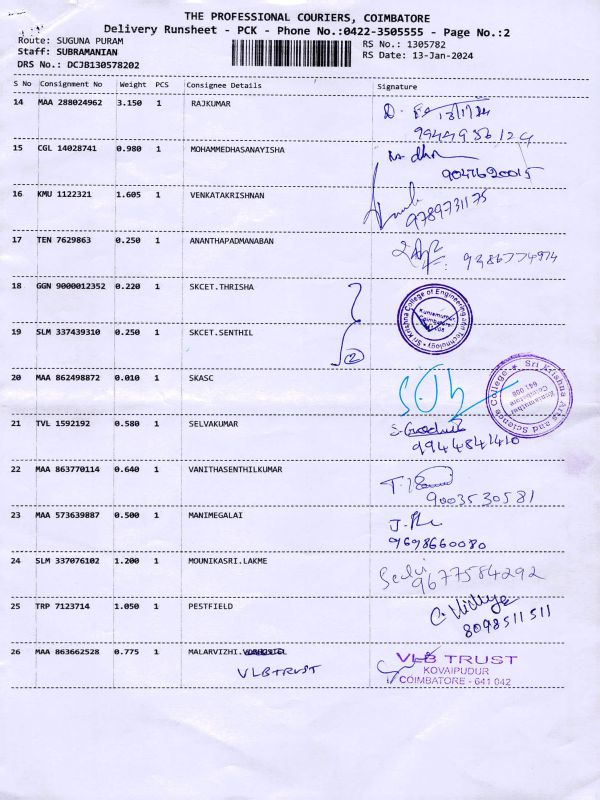 THE PROFESSIONAL COURIERS, COIMBATORE
Delivery Runsheet - PCK - Phone No.:0422-3505555 - Page No.:2
Route: SUGUNA PURAM
RS No.: 1305782
Staff: SUBRAMANIAN
RS Date: 13-Jan-2024
DRS No.: DCJB130578202
S No Consignment No Weight PCS Consignee Details Signature
14 MAA 288024962 3.150 1 RAJKUMAR
15 CGL 14028741 0.980 1 MOHAMMEDHASANAYISHA
16 KMU 1122321 1.605 1 VENKATAKRISHNAN
9789731175
17 TEN 7629863 0.250 1 ANANTHAPADMANABAN
18 GGN 9000012352 0.220 1 SKCET.THRISHA
Sri Krishna College of Engineering and Technology
Kuniamuthur
Coimbatore
19 SLM 337439310 0.250 1 SKCET.SENTHIL
2
20 MAA 862498872 0.010 1 SKASC
Sri Krishna Arts and Science College
Kuniamuthur
Coimbatore
641 008
21 TVL 1592192 0.580 1 SELVAKUMAR
9944841410
22 MAA 863770114 0.640 1 VANITHASENTHILKUMAR
9003530581
23 MAA 573639887 0.500 1 MANIMEGALAI
9698660080
24 SLM 337076102 1.200 1 MOUNIKASRI.LAKME
Selvi
9677584292
25 TRP 7123714 1.050 1 PESTFIELD
C. Vidhya
8098511511
26 MAA 863662528 0.775 1 MALARVIZHI.
VLB TRUST
VLB TRUST
KOVAIPUDUR
COIMBATORE - 641 042